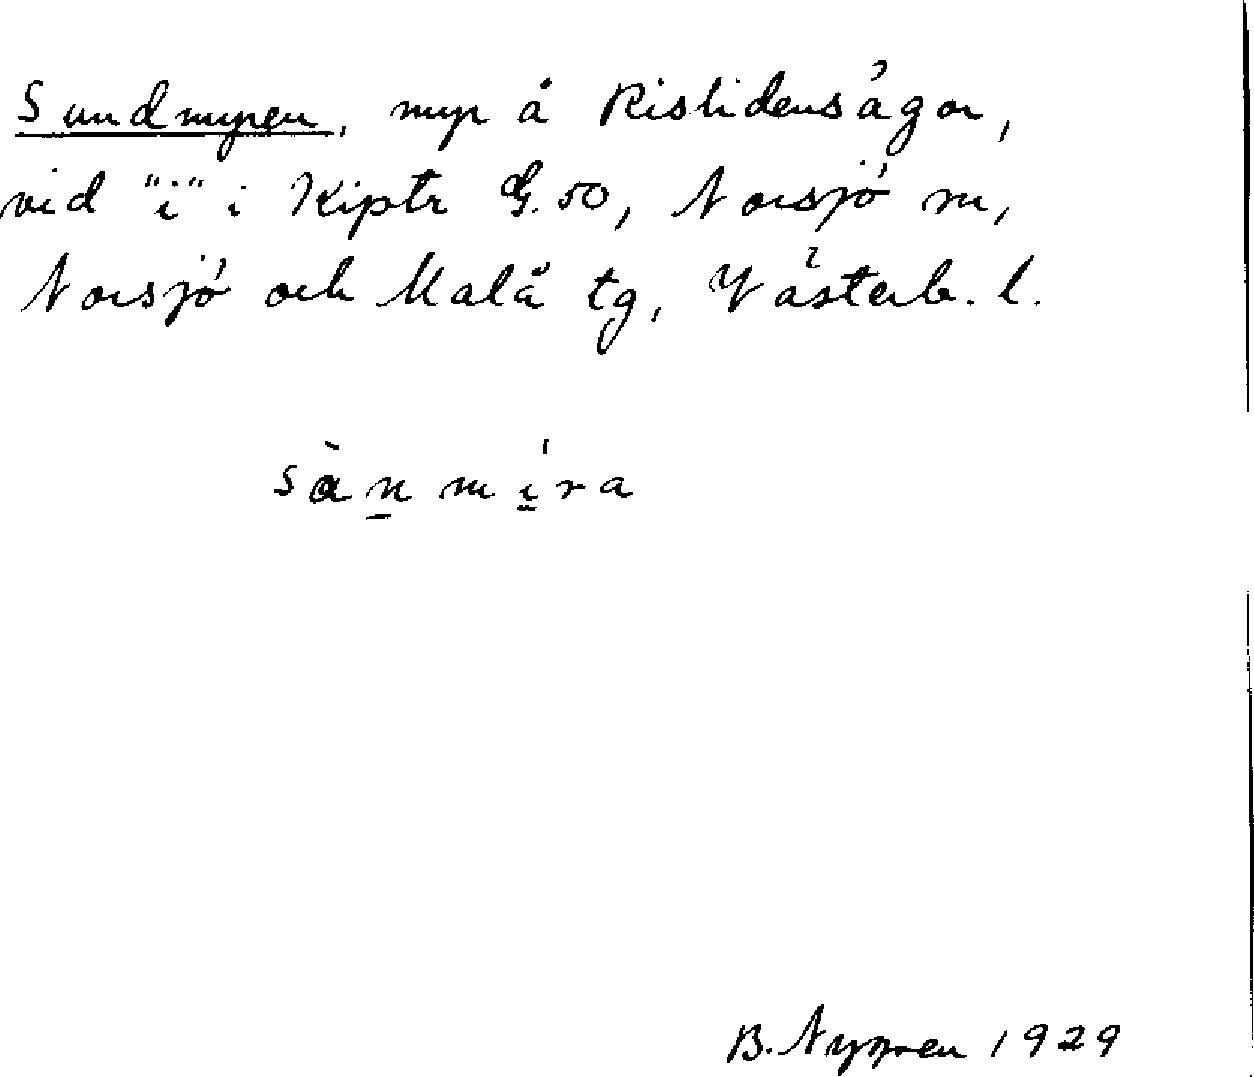 Sundmyren, myr å Rislidens ägor,
vid "i" i Kiptr G.50, Norsjö sn,
Norsjö och Malå tg, Västerb. l.
sànmíra
B. Nygren 1929